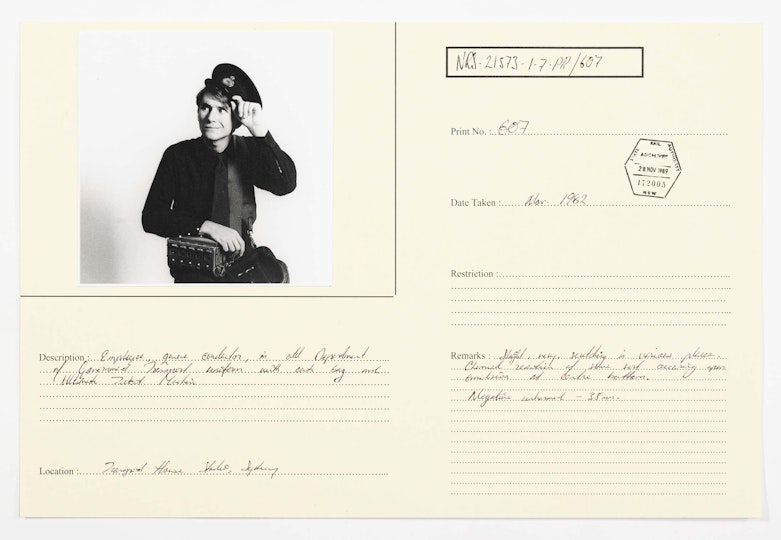 NRS-21573-1-7-PR/607
Print No. : 607
RAIL
ARCHIVES
28 NOV 1989
172005
NSW
Date Taken : Nov. 1962
Restriction :
Description : Employee, conductor, in old Department
of Government Transport uniform with cash bag and
Ultimate Ticket Machine
Remarks : scratching in various places.
Chemical reaction of some sort occuring upon
emulsion at centre bottom.
Negative - 35mm.
Location : Transport House Studio, Sydney